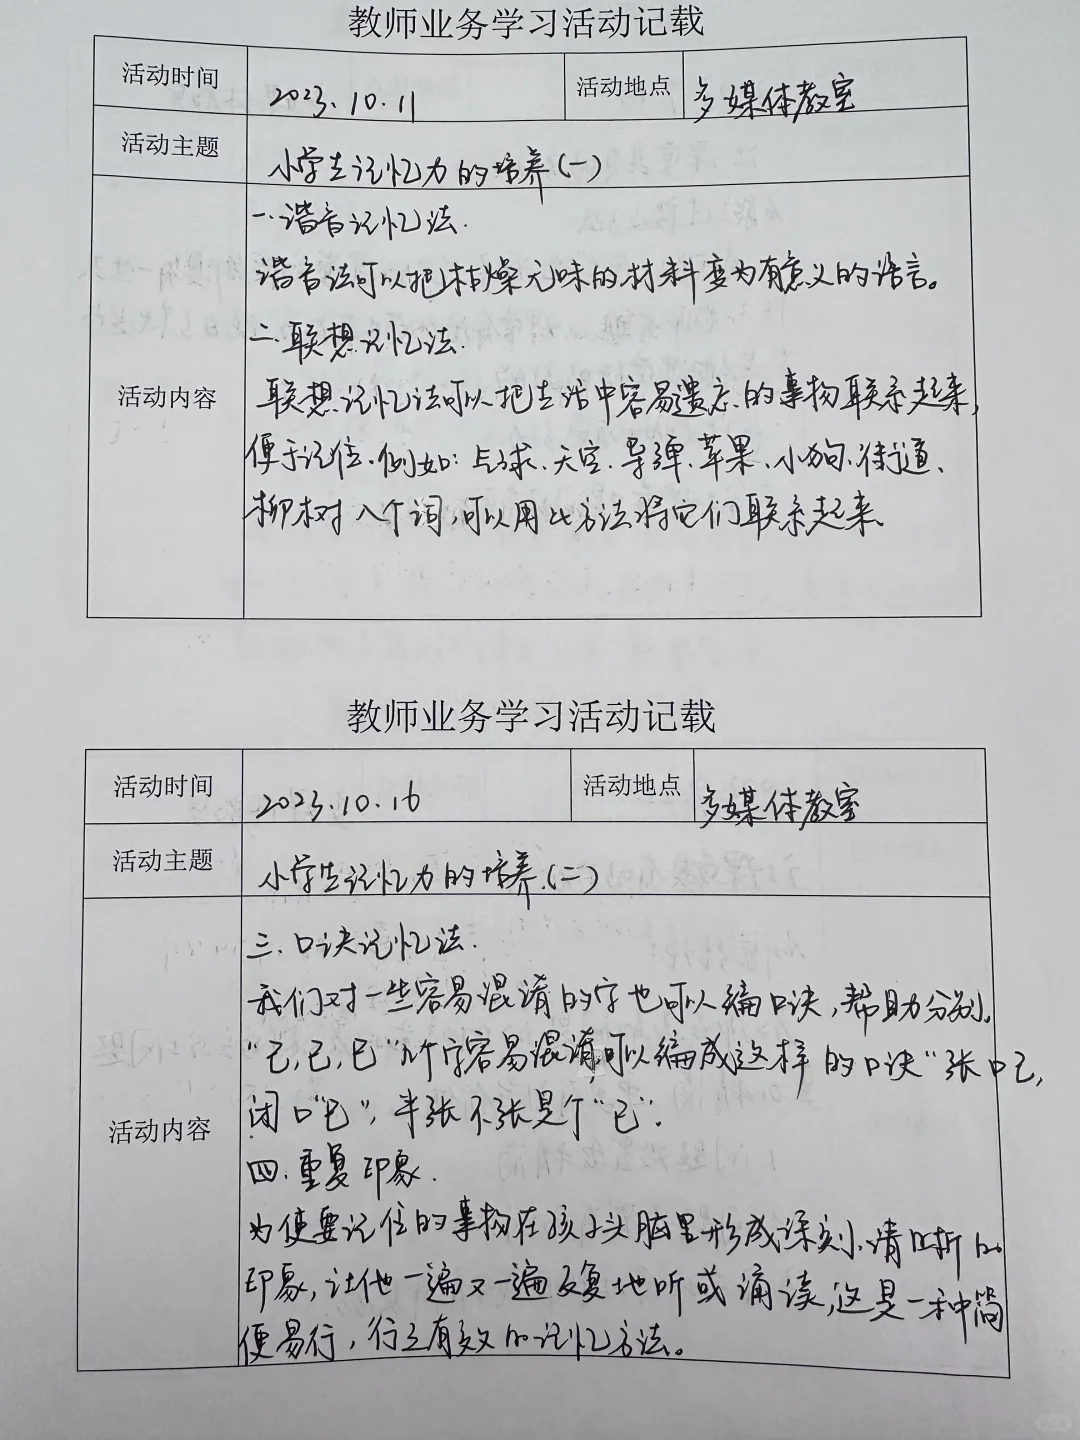 教师业务学习活动记载
活动时间 2023.10.11 活动地点 多媒体教室
活动主题 小学生记忆力的培养(一)
活动内容
一.谐音记忆法.
谐音法可以把枯燥无味的材料变为有意义的语言。
二.联想记忆法.
联想记忆法可以把生活中容易遗忘的事物联系起来,
便于记住.例如:占球、天空、导弹、苹果、小狗、街道、
柳树八个词,可以用此方法将它们联系起来.
教师业务学习活动记载
活动时间 2023.10.16 活动地点 多媒体教室
活动主题 小学生记忆力的培养.(二)
活动内容
三.口诀记忆法.
我们对一些容易混淆的字也可以编口诀,帮助分别。
"己,已,巳"几个字容易混淆,可以编成这样的口诀"张口己,
闭口"巳",半张不张是个"已".
四.重复印象.
为使要记住的事物在孩子头脑里形成深刻、清晰的
印象,让他一遍又一遍反复地听或诵读,这是一种简
便易行,行之有效的记忆方法。